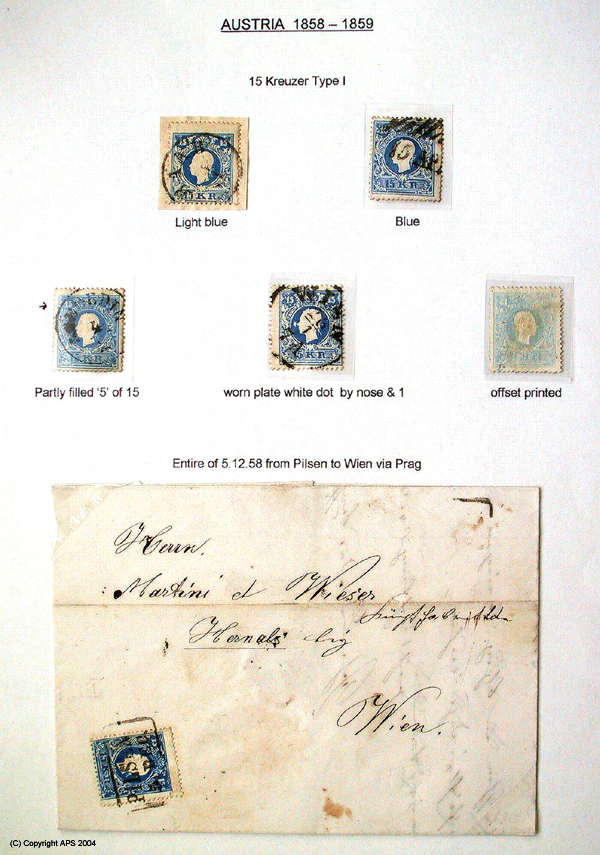 AUSTRIA 1858 – 1859
15 Kreuzer Type I
15 KR
Light blue
Blue
Partly filled '5' of 15
worn plate white dot by nose & 1
offset printed
Entire of 5.12.58 from Pilsen to Wien via Prag
Herrn.
Martini et Wieser
Hernals big
Wien.
(C) Copyright APS 2004